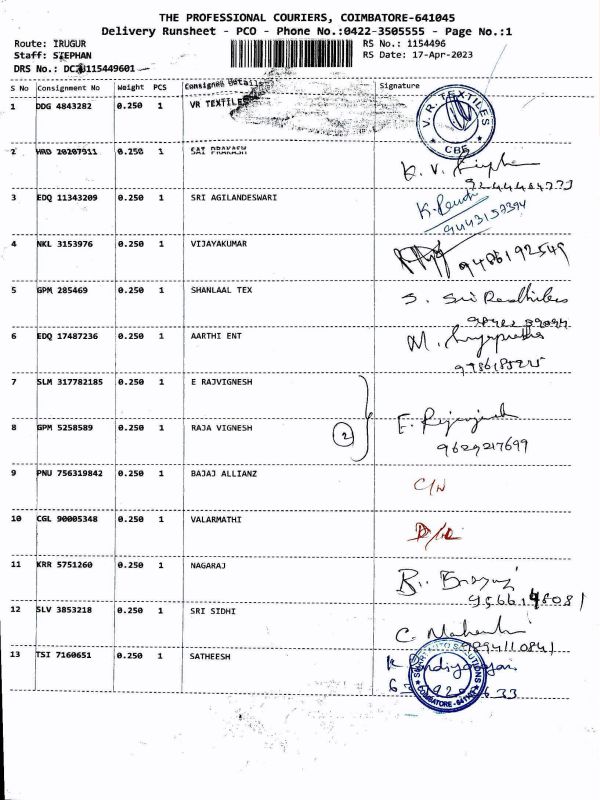 THE PROFESSIONAL COURIERS, COIMBATORE-641045
Delivery Runsheet - PCO - Phone No.:0422-3505555 - Page No.:1
Route: IRUGUR
RS No.: 1154496
Staff: STEPHAN
RS Date: 17-Apr-2023
DRS No.: 115449601
S No Consignment No Weight PCS Consignee Details Signature
1 DDG 4843282 0.250 1 VR TEXTILES
V. R. TEXTILES
CBE
2 HRD 20207911 0.250 1 SAI PRAKASH
K. V.
3 EDQ 11343209 0.250 1 SRI AGILANDESWARI
9443152394
4 NKL 3153976 0.250 1 VIJAYAKUMAR
9486192549
5 GPM 285469 0.250 1 SHANLAAL TEX
S. Sri
6 EDQ 17487236 0.250 1 AARTHI ENT
M.
7 SLM 317782185 0.250 1 E RAJVIGNESH
8 GPM 5258589 0.250 1 RAJA VIGNESH
2
E.
9629217699
9 PNU 756319842 0.250 1 BAJAJ ALLIANZ
C/N
10 CGL 90005348 0.250 1 VALARMATHI
D/L
11 KRR 5751260 0.250 1 NAGARAJ
12 SLV 3853218 0.250 1 SRI SIDHI
C.
9894110841
13 TSI 7160651 0.250 1 SATHEESH
SOLUTIONS
COIMBATORE